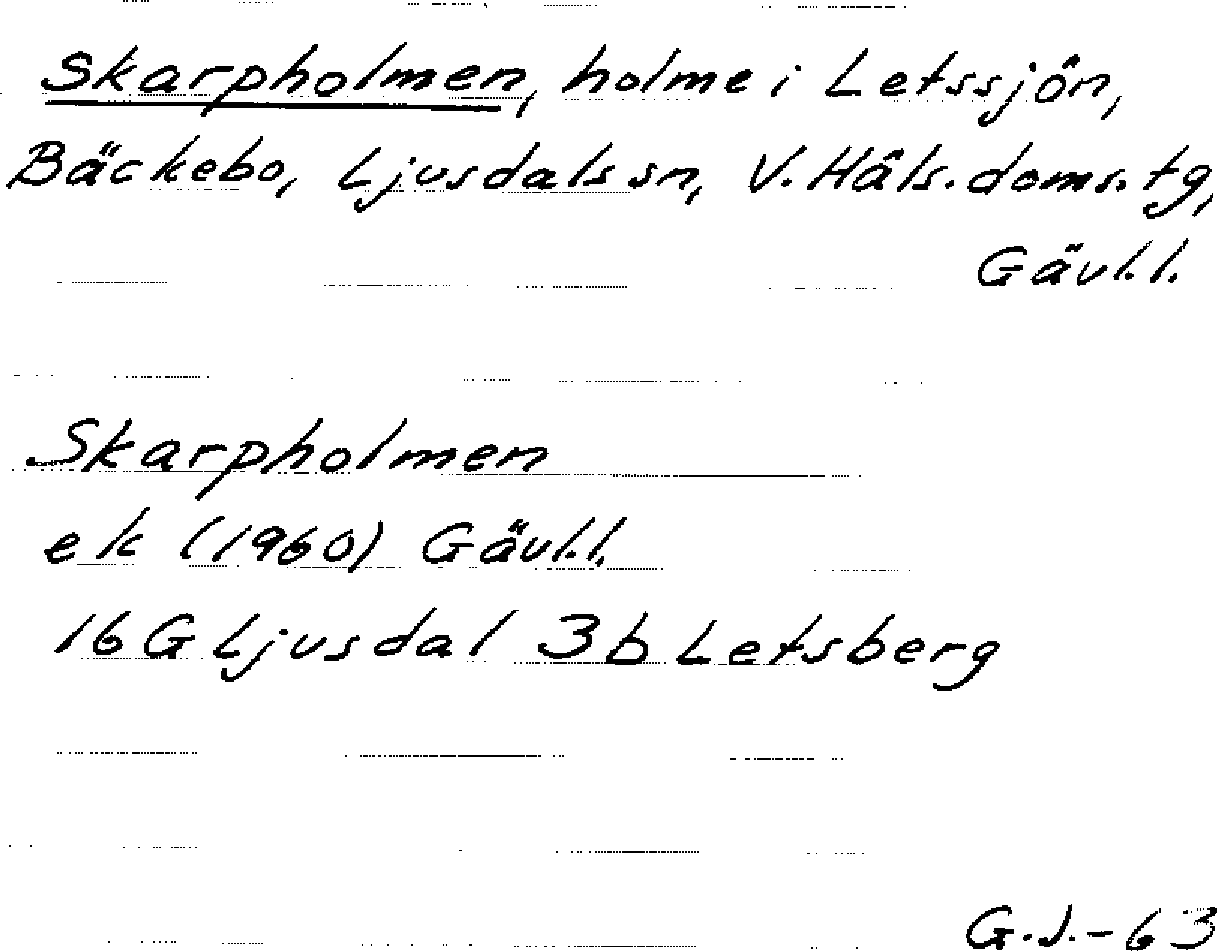 Skarpholmen, holme i Letssjön,
Bäckebo, Ljusdals sn, V. Häls. doms. tg,
Gävl. l.
Skarpholmen
ek (1960) Gävl. l.
16 G Ljusdal 3b Letsberg
G.J.-63